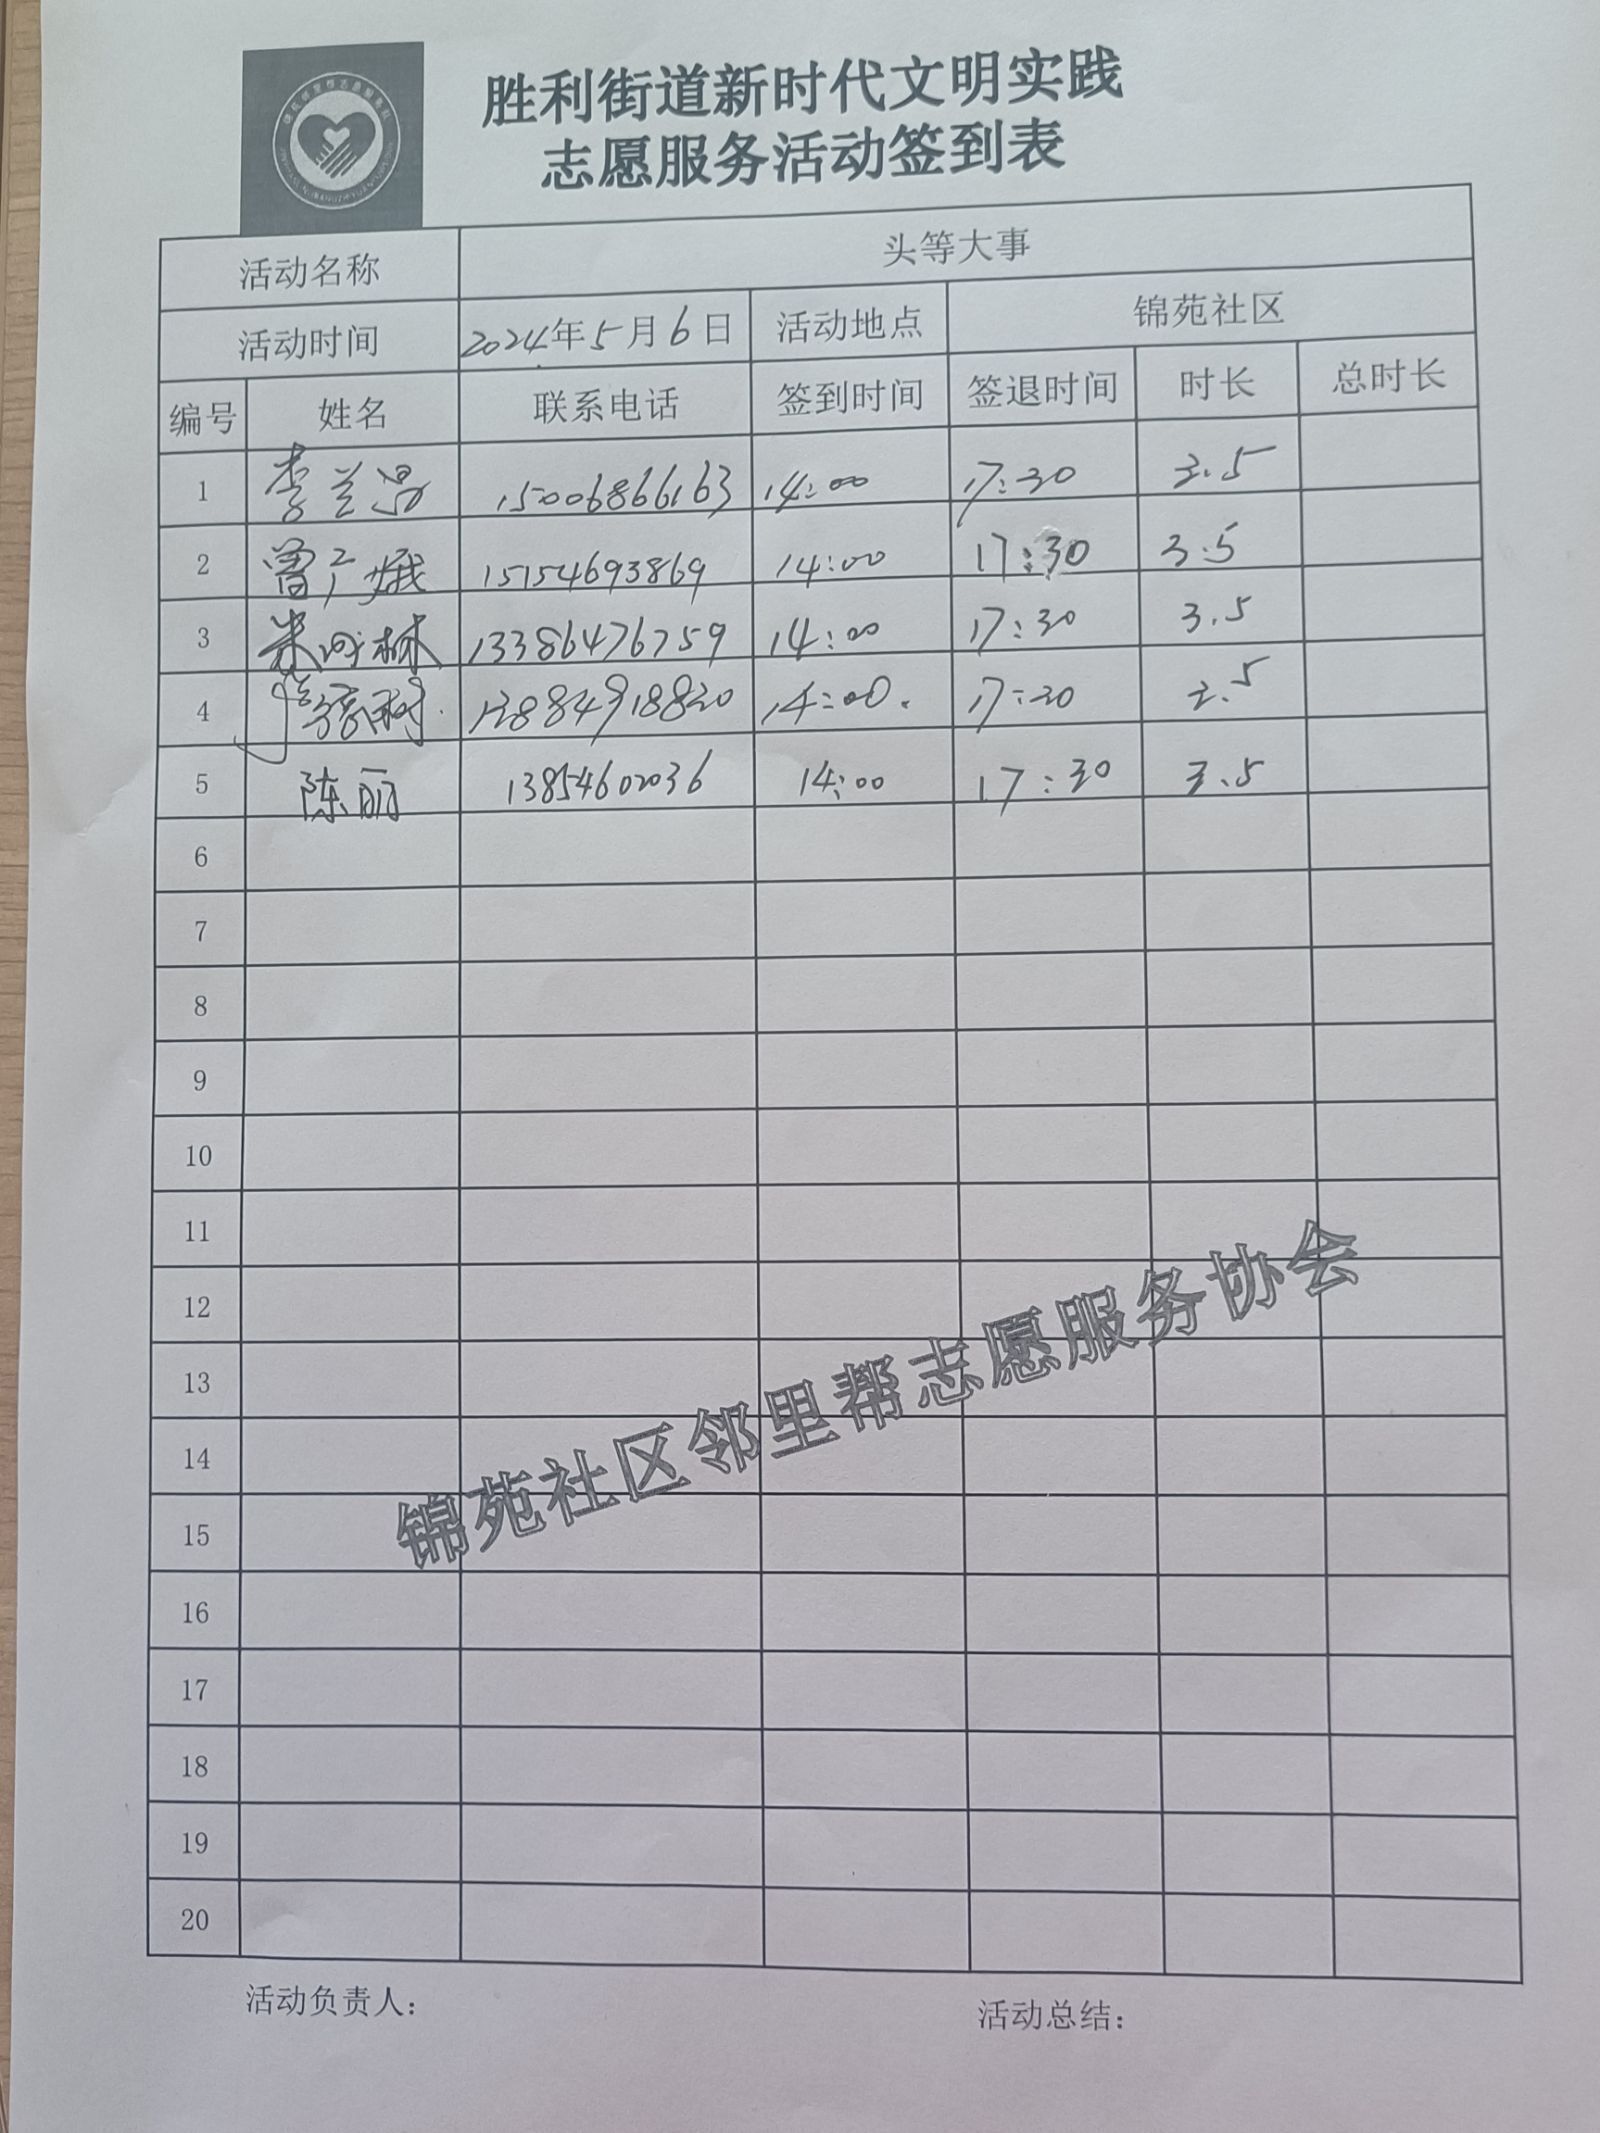 胜利街道新时代文明实践
志愿服务活动签到表
活动名称 头等大事
活动时间 2024年5月6日 活动地点 锦苑社区
编号 姓名 联系电话 签到时间 签退时间 时长 总时长
1 李兰 15006866163 14:00 17:30 3.5
2 曾广娥 15154693869 14:00 17:30 3.5
3 林 13386476759 14:00 17:30 3.5
4 13884918820 14:00. 17:30 3.5
5 陈丽 13854602036 14:00 17:30 3.5
6
7
8
9
10
11
12
13
14
15
16
17
18
19
20
锦苑社区邻里帮志愿服务协会
活动负责人： 活动总结：